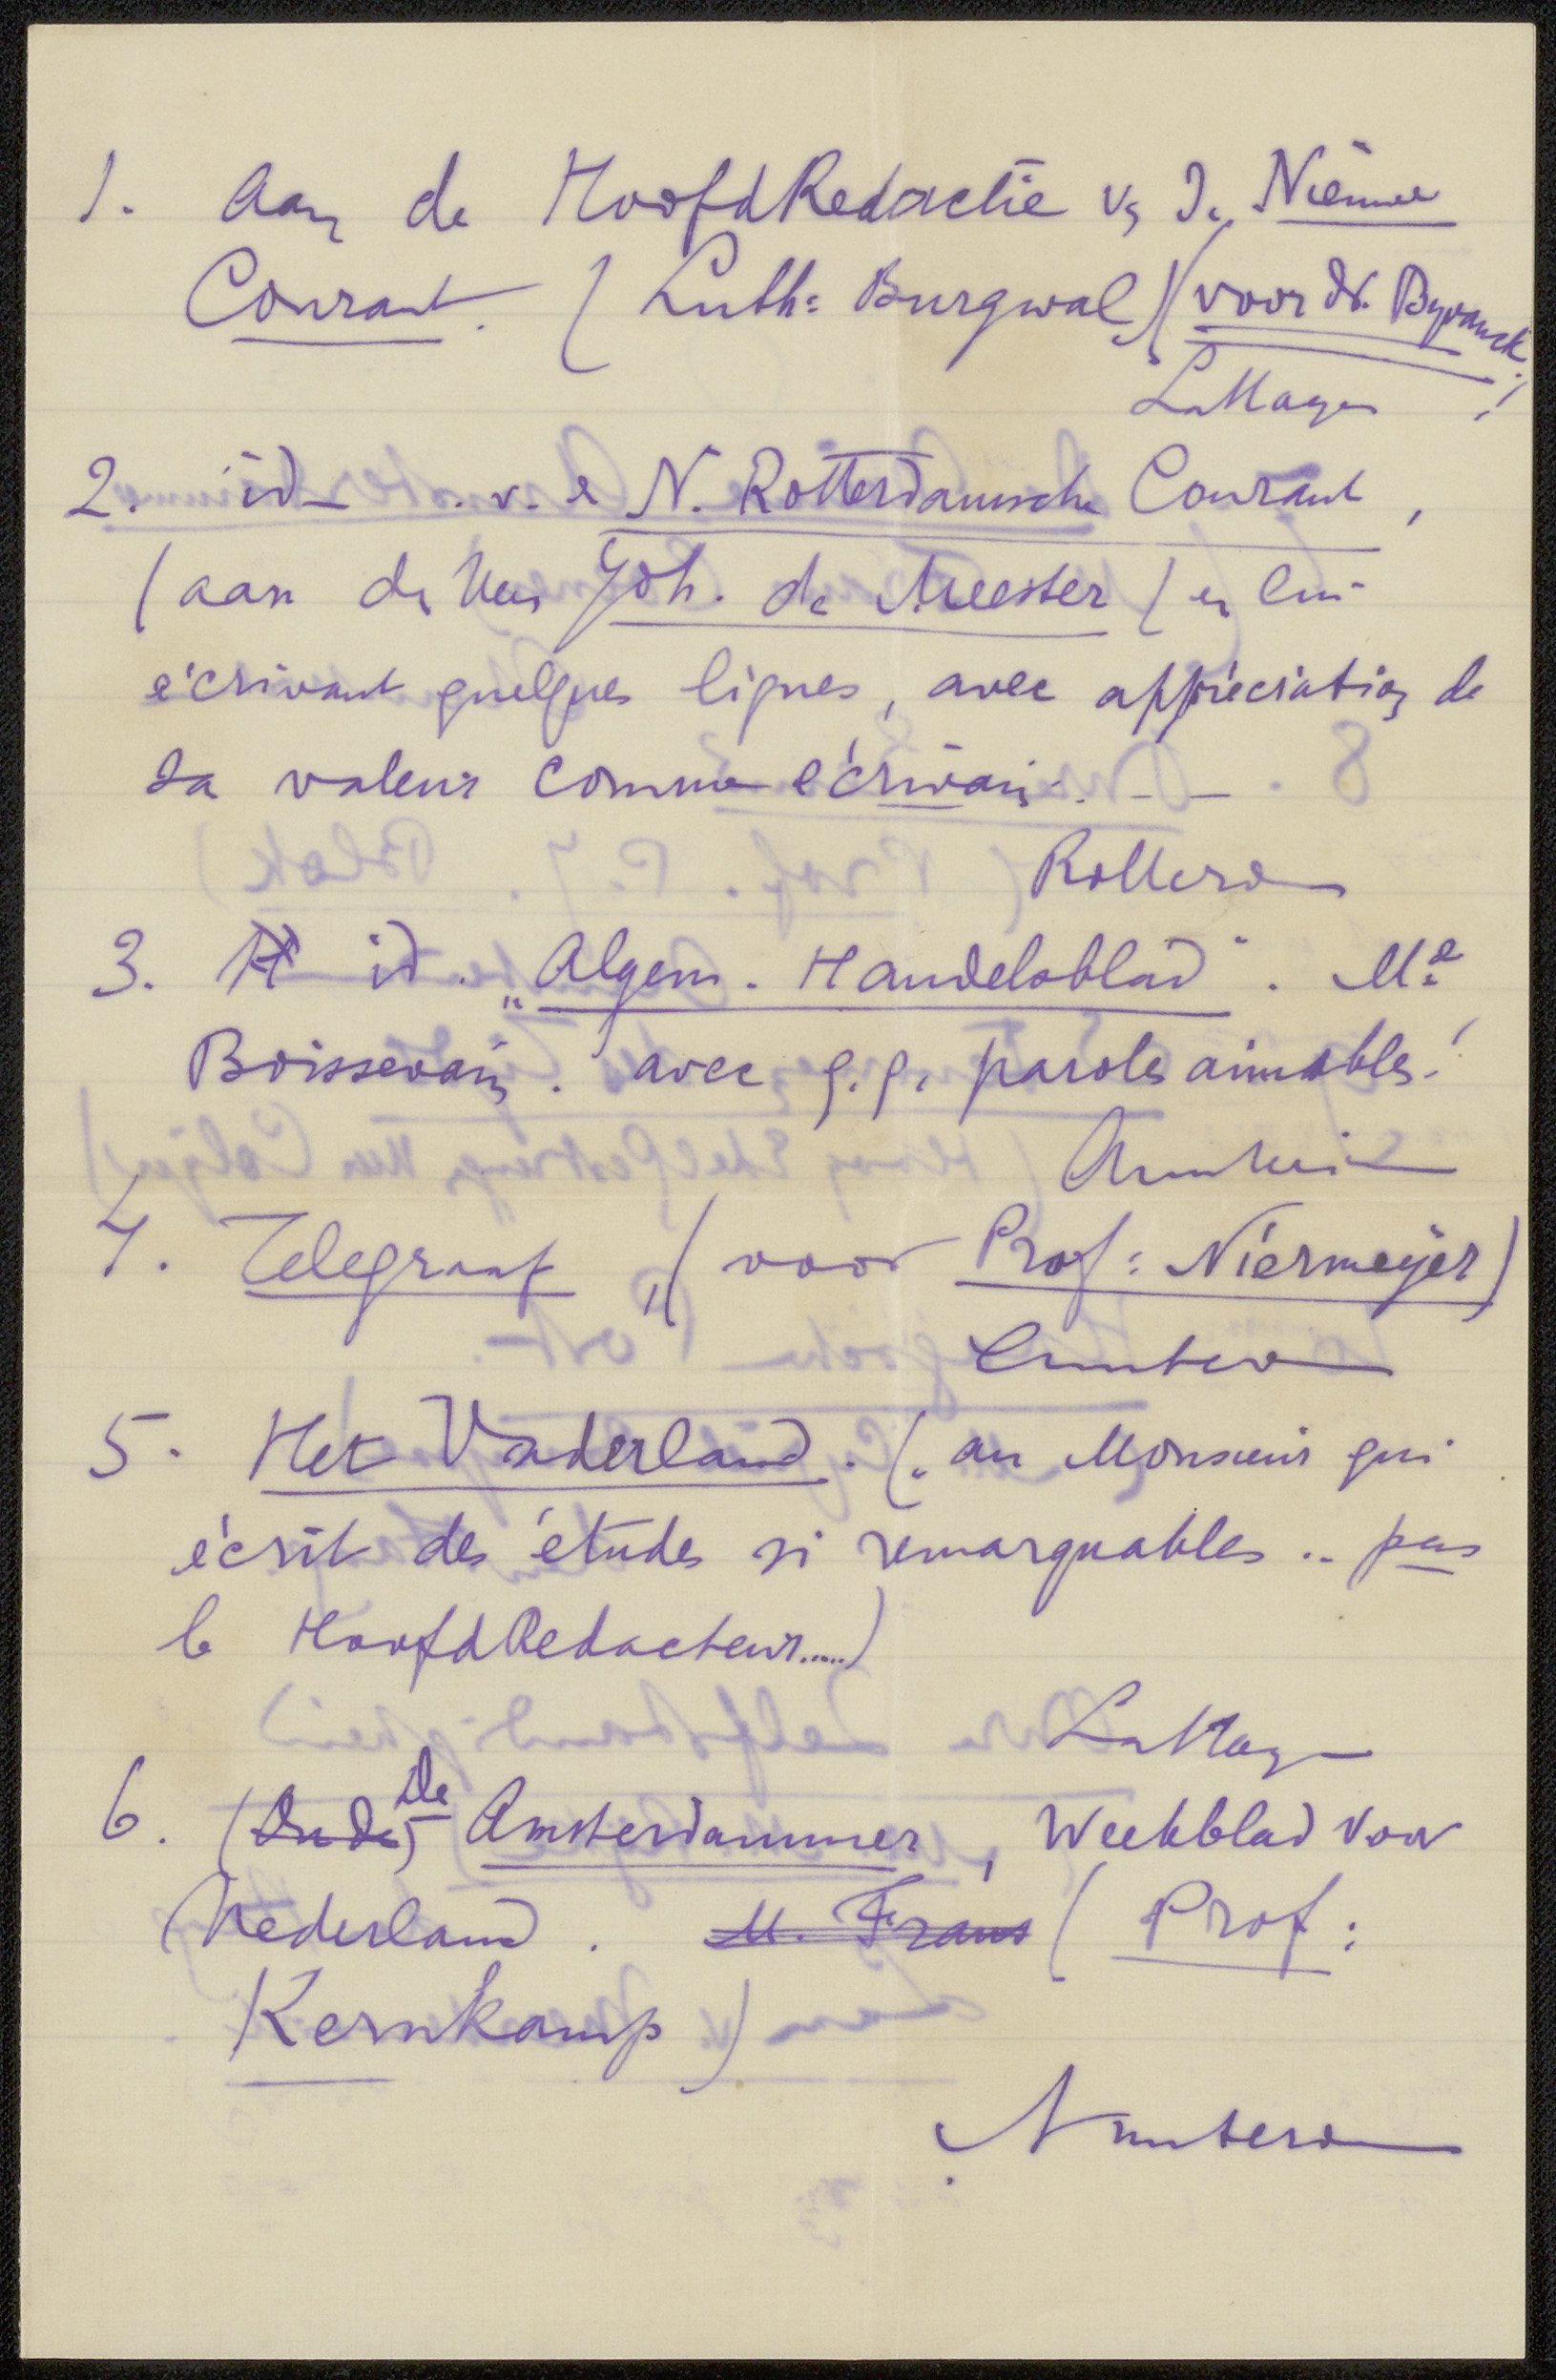 1. Aan de HoofdRedactie v. De Nieuwe
Courant. (Luth: Burgwal) (voor Dr. Byvanck!)
La Haye
2. id – . v. d N. Rotterdamsche Courant,
(aan de Heer Joh. de Meester) en lui
écrivant quelques lignes, avec appréciation de
sa valeur comme écrivain . – –
Rotterd
3. H id. „Algem. Handelsblad". Mr
Boissevain. avec q.q. paroles aimables!
4. Telegraaf, (voor Prof: Niermeijer)
5. Het Vaderland. (. au Monsieur qui
écrit des études si remarquables .. pas
le HoofdRedacteur.....)
La Haye
6. (Oude) De Amsterdammer, Weekblad voor
Nederland. M. Frans (Prof:
Kernkamp)